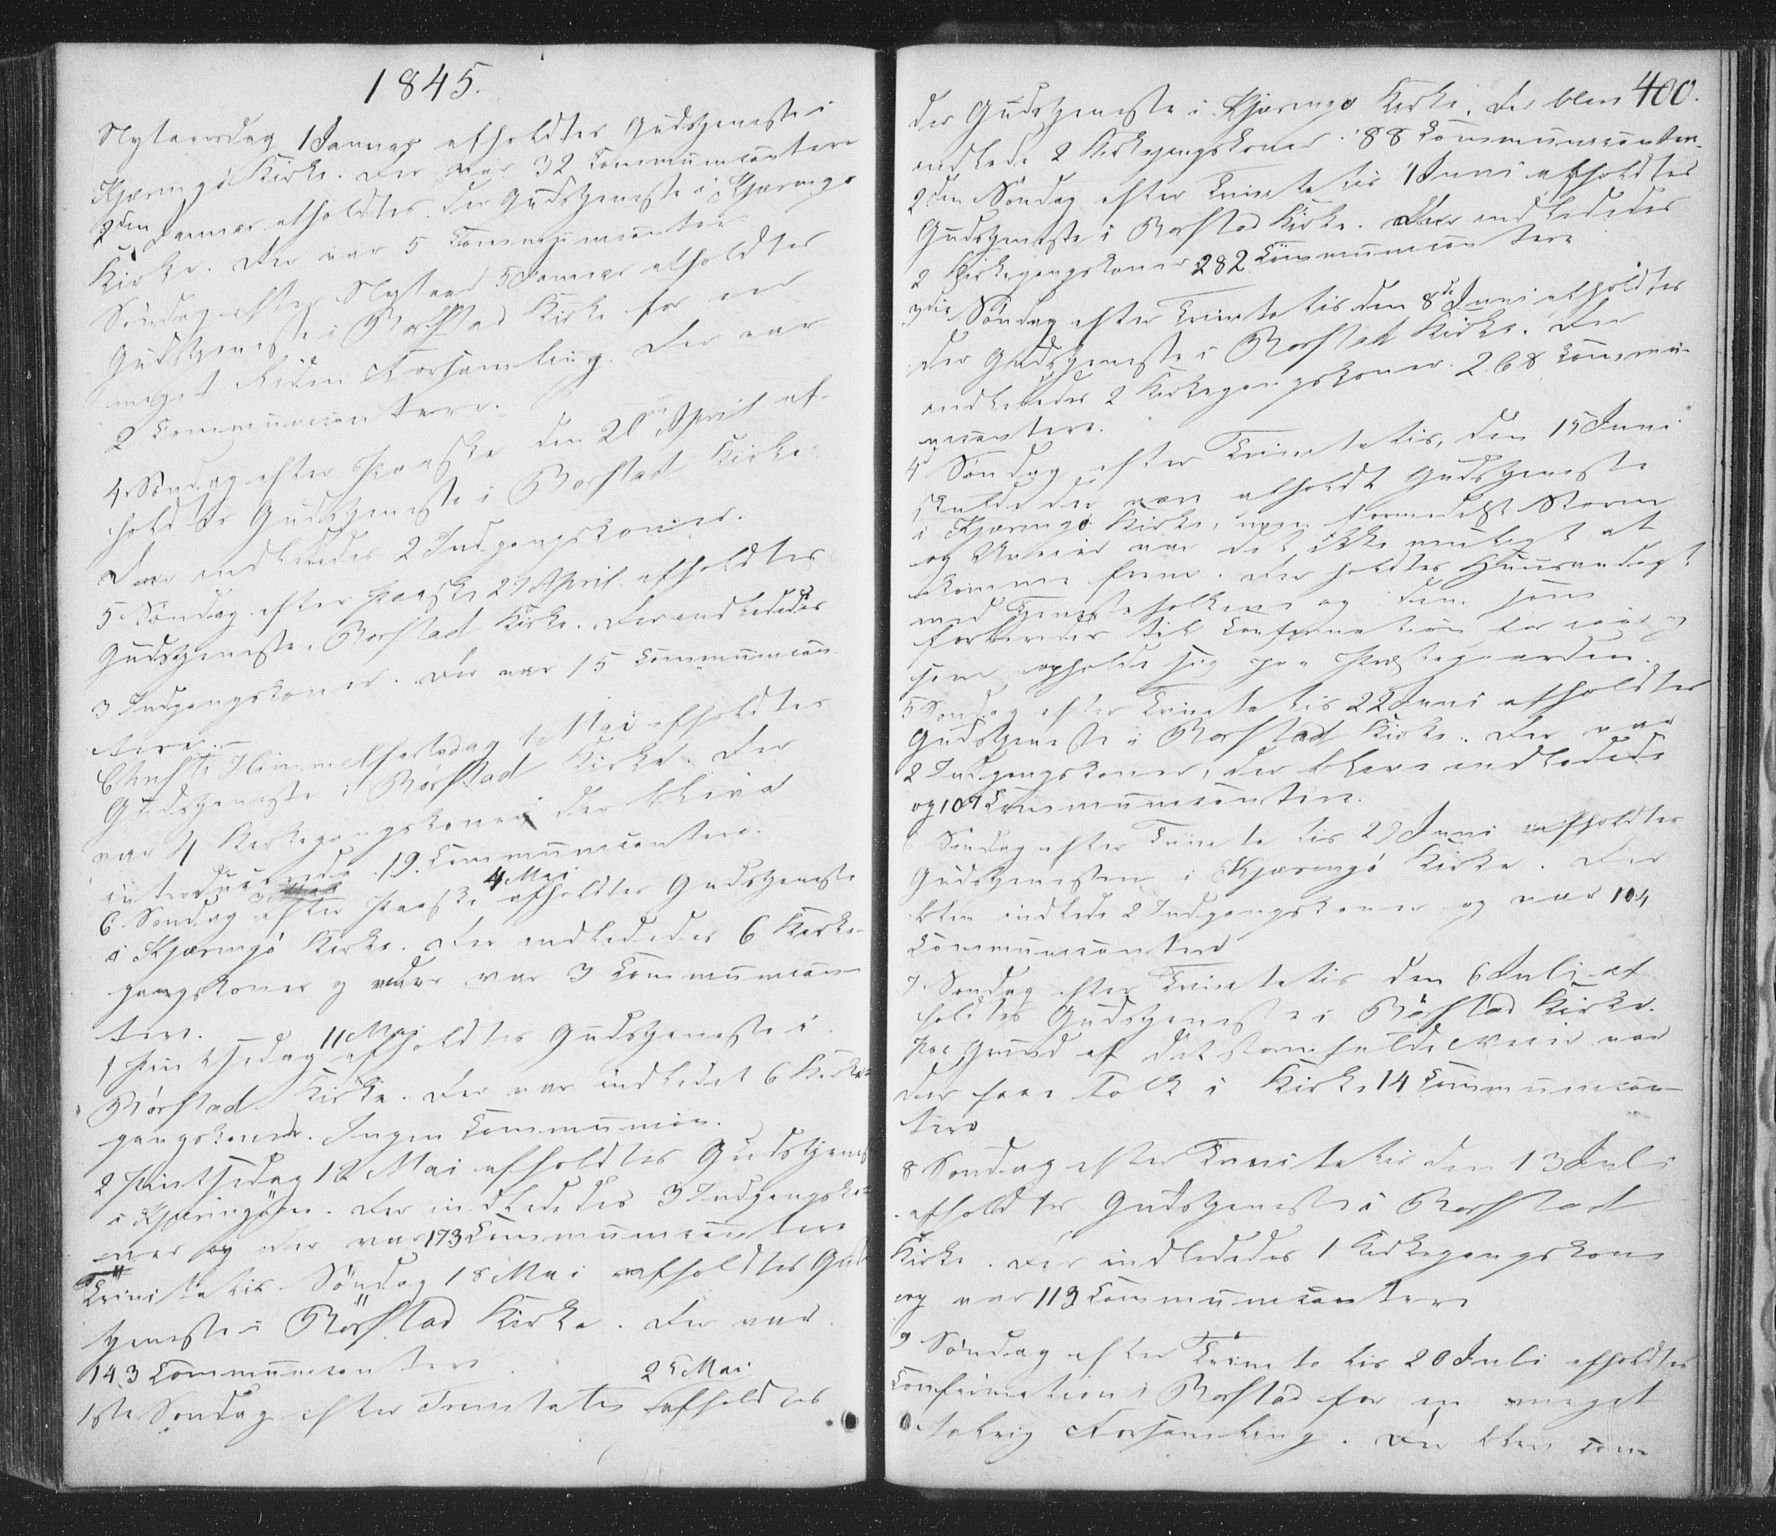 1845.
Nytaarsdag 1 Januar afholdtes Gudstjeneste i
Kjæringø Kirke. Der var 32 Communicantere
2den Januar afholdtes der Gudstjeneste i Kjæringø
Kirke. Der var 5 Communicantere
Søndag efter Nytaar 5 Januar afholdtes
Gudstjeneste i Rørstad Kirke for en
meget liden Forsamling. Der var
2 Communicantere.
4 Søndag efter Paaske den 20 April af-
holdtes Gudstjeneste i Rørstad Kirke
Der indlededes 2 Indgangskoner.
5 Søndag efter Paaske 27 April afholdtes
Gudstjeneste i Rørstad Kirke. Der indlededes
3 Indgangskoner. Der var 15 Communican
tere.
Christi Himmelfartsdag 1 Mai afholdtes
Gudstjeneste i Rørstad Kirke. Der
var 4 Kirkegangskoner der bleve
introducerede 19 Communicantere.
6 Søndag efter Paaske 4 Mai afholdtes Gudstjeneste
i Kjæringø Kirke. Der indlededes 6 Kirke-
gangskoner og der var 3 Communican
tere.
1 Pintsedag 11 Mai afholdtes Gudstjeneste i
Rørstad Kirke. Der var indledet 6 Kirke-
gangskoner. Ingen Communion.
2 Pintsedag 12 Mai afholdtes Gudstjeneste
i Kjæringøen. Der indlededes 3 Indgangsko-
ner og der var 173 Communicantere
Trinitatis Søndag 18 Mai afholdtes Guds
tjeneste i Rørstad Kirke. Der var
143 Communicantere
1ste Søndag efter Trinitatis 25 Mai afholdtes
400.
der Gudstjeneste i Kjæringø Kirke. Der blev
indlede 2 Kirkegangskoner. 88 Communicanter.
2den Søndag efter Trinitatis 1 Juni afholdtes
Gudstjeneste i Rørstad Kirke. Der indlededes
2 Kirkegangskoner 282 Communicantere
3die Søndag efter Trinitatis den 8de Juni afholdtes
der Gudstjeneste i Rørstad Kirke. Der
indlededes 2 Kirkegangskoner. 268 Commu-
nicantere.
4 Søndag efter Trinitatis, den 15 Juni
skulde der være afholdt Gudstjeneste
i Kjæringø Kirke, men formedelst Storm
og Uveier var det ikke muligt at
komme frem. Der holdtes Huusandagt
med Tjenestefolkene og dem som
forberedes til Confirmation for iaar og
som opholde sig paa Præstegaarden.
5 Søndag efter Trinitatis 22 Juni afholdtes
Gudstjeneste i Rørstad Kirke. Der var
2 Indgangskoner, der bleve indledede
og 107 Communicantere.
Søndag efter Trinitatis 29 Juni afholdtes
Gudstjenesten i Kjæringø Kirke. Der
blev indlede 2 Indgangskoner og var 104
Communicantere
7 Søndag efter Trinitatis den 6 Juli af
holdtes Gudstjeneste i Rørstad Kirke.
Paa Grund af det stormfulde Veir var
der faae Folk i Kirke 14 Communican
tere
8 Søndag efter Trinitatis den 13 Juli
afholdtes Gudstjeneste i Rørstad
Kirke. Der indlededes 1 Kirkegangskone
og var 113 Communicantere
9 Søndag efter Trinitatis 20 Juli afholdtes
Confirmation i Rørstad for en meget
talrig Forsamling. Der blev con